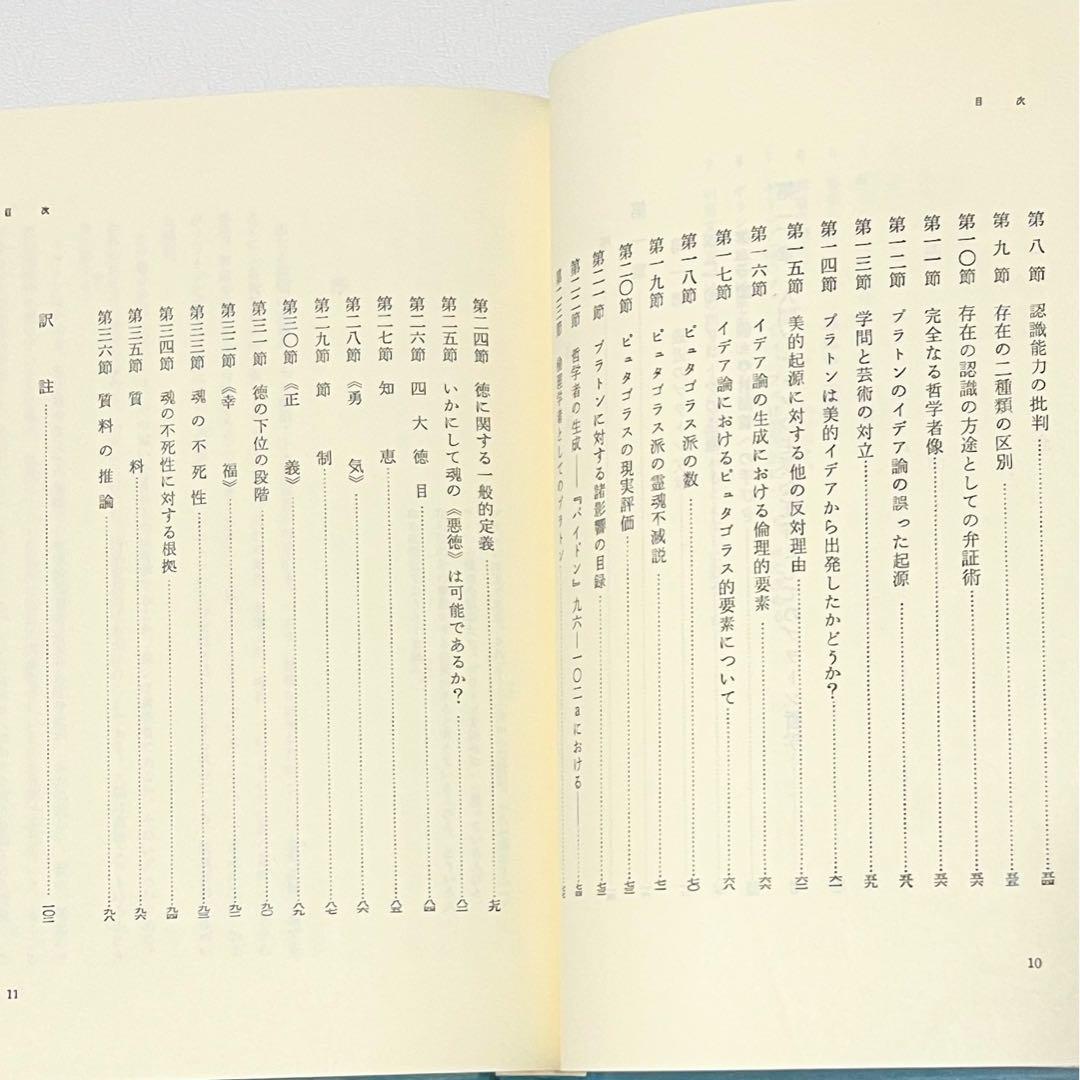 目次
第八節 認識能力の批判……五四
第九節 存在の二種類の区別……五五
第一〇節 存在の認識の方途としての弁証術……五六
第一一節 完全なる哲学者像……五六
第一二節 プラトンのイデア論の誤った起源……五八
第一三節 学問と芸術の対立……五九
第一四節 プラトンは美的イデアから出発したかどうか?……六一
第一五節 美的起源に対する他の反対理由……六二
第一六節 イデア論の生成における倫理的要素……六六
第一七節 イデア論におけるピュタゴラス的要素について……六八
第一八節 ピュタゴラス派の数……七〇
第一九節 ピュタゴラス派の霊魂不滅説……七一
第二〇節 ピュタゴラスの現実評価……七二
第二一節 プラトンに対する諸影響の目録……七三
第二二節 哲学者の生成――『パイドン』九六―一〇二aにおける――……七四
第二三節 倫理学者としてのプラトン……
10
目次
第二四節 徳に関する一般的定義……七九
第二五節 いかにして魂の《悪徳》は可能であるか?……八二
第二六節 四大徳目……八四
第二七節 知恵……八五
第二八節 《勇気》……八六
第二九節 節制……八七
第三〇節 《正義》……八九
第三一節 徳の下位の段階……九〇
第三二節 《幸福》……九二
第三三節 魂の不死性……九三
第三四節 魂の不死性に対する根拠……九四
第三五節 質料……九六
第三六節 質料の推論……九八
訳註……一〇二
11